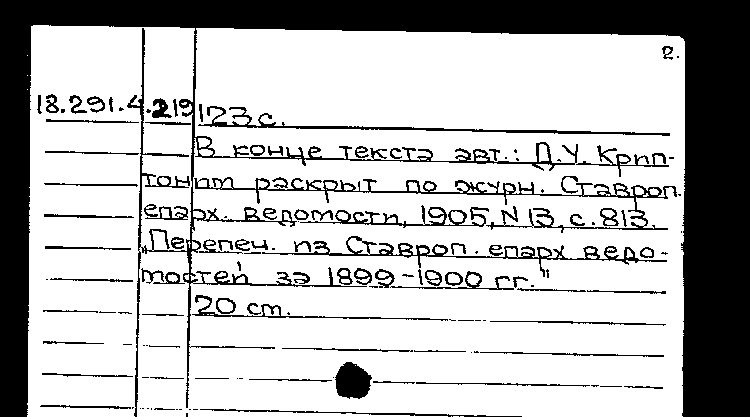 2.
18.291.4.219 123 с.
В конце текста авт.: Д.У. Крип-
тоним раскрыт по журн. Ставроп.
епарх. ведомости, 1905, N 13, с. 813.
„Перепеч. из Ставроп. епарх ведо-
мостей за 1899-1900 гг."
20 см.